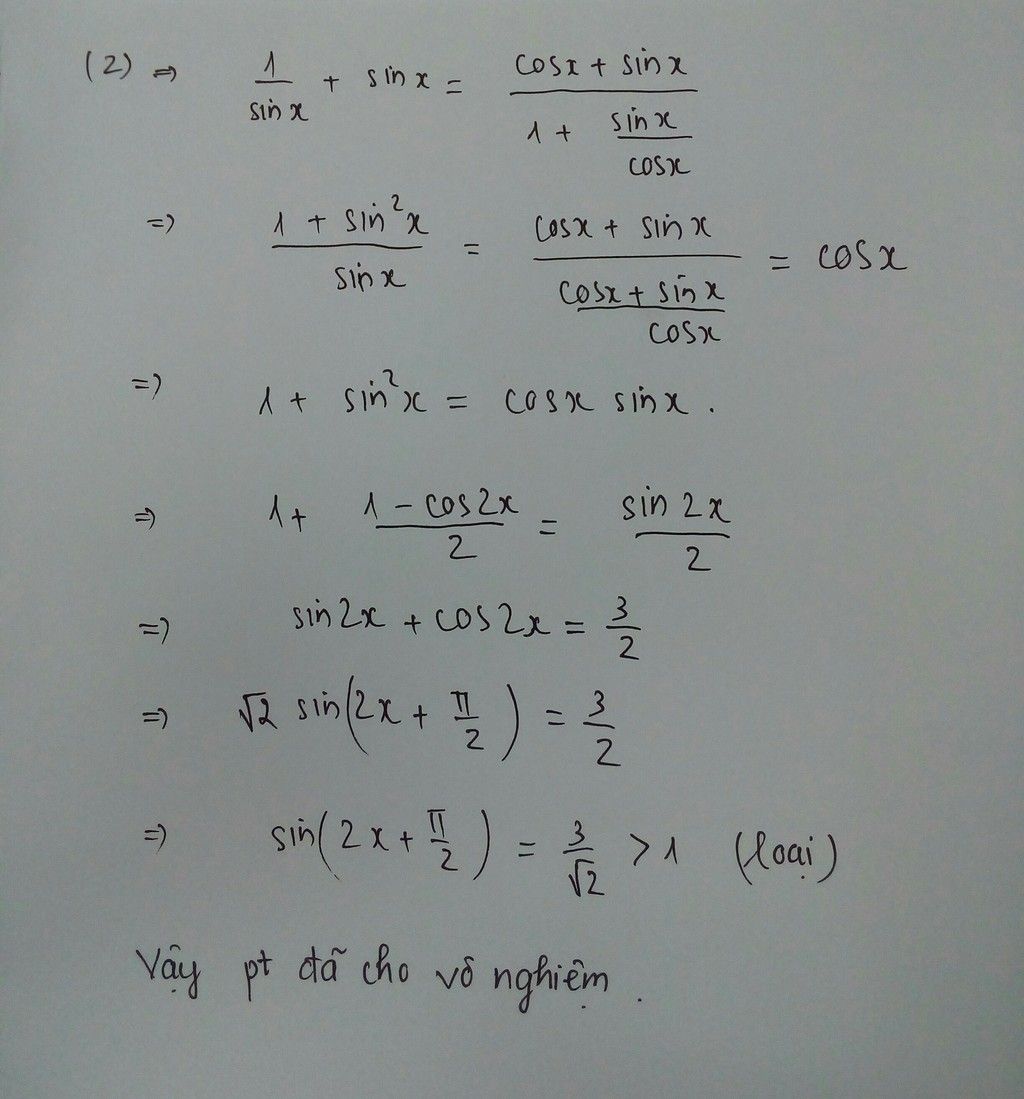 (2) => 1/sin x + sin x = (cosx + sin x)/(1 + sin x/cosx)
=> (1 + sin²x)/sin x = (cosx + sin x)/((cosx + sin x)/cosx) = cosx
=> 1 + sin²x = cosx sinx .
=> 1 + (1 - cos2x)/2 = sin 2x/2
=> sin2x + cos2x = 3/2
=> √2 sin(2x + π/2) = 3/2
=> sin(2x + π/2) = 3/√2 > 1 (loại)
Vậy pt đã cho vô nghiệm .